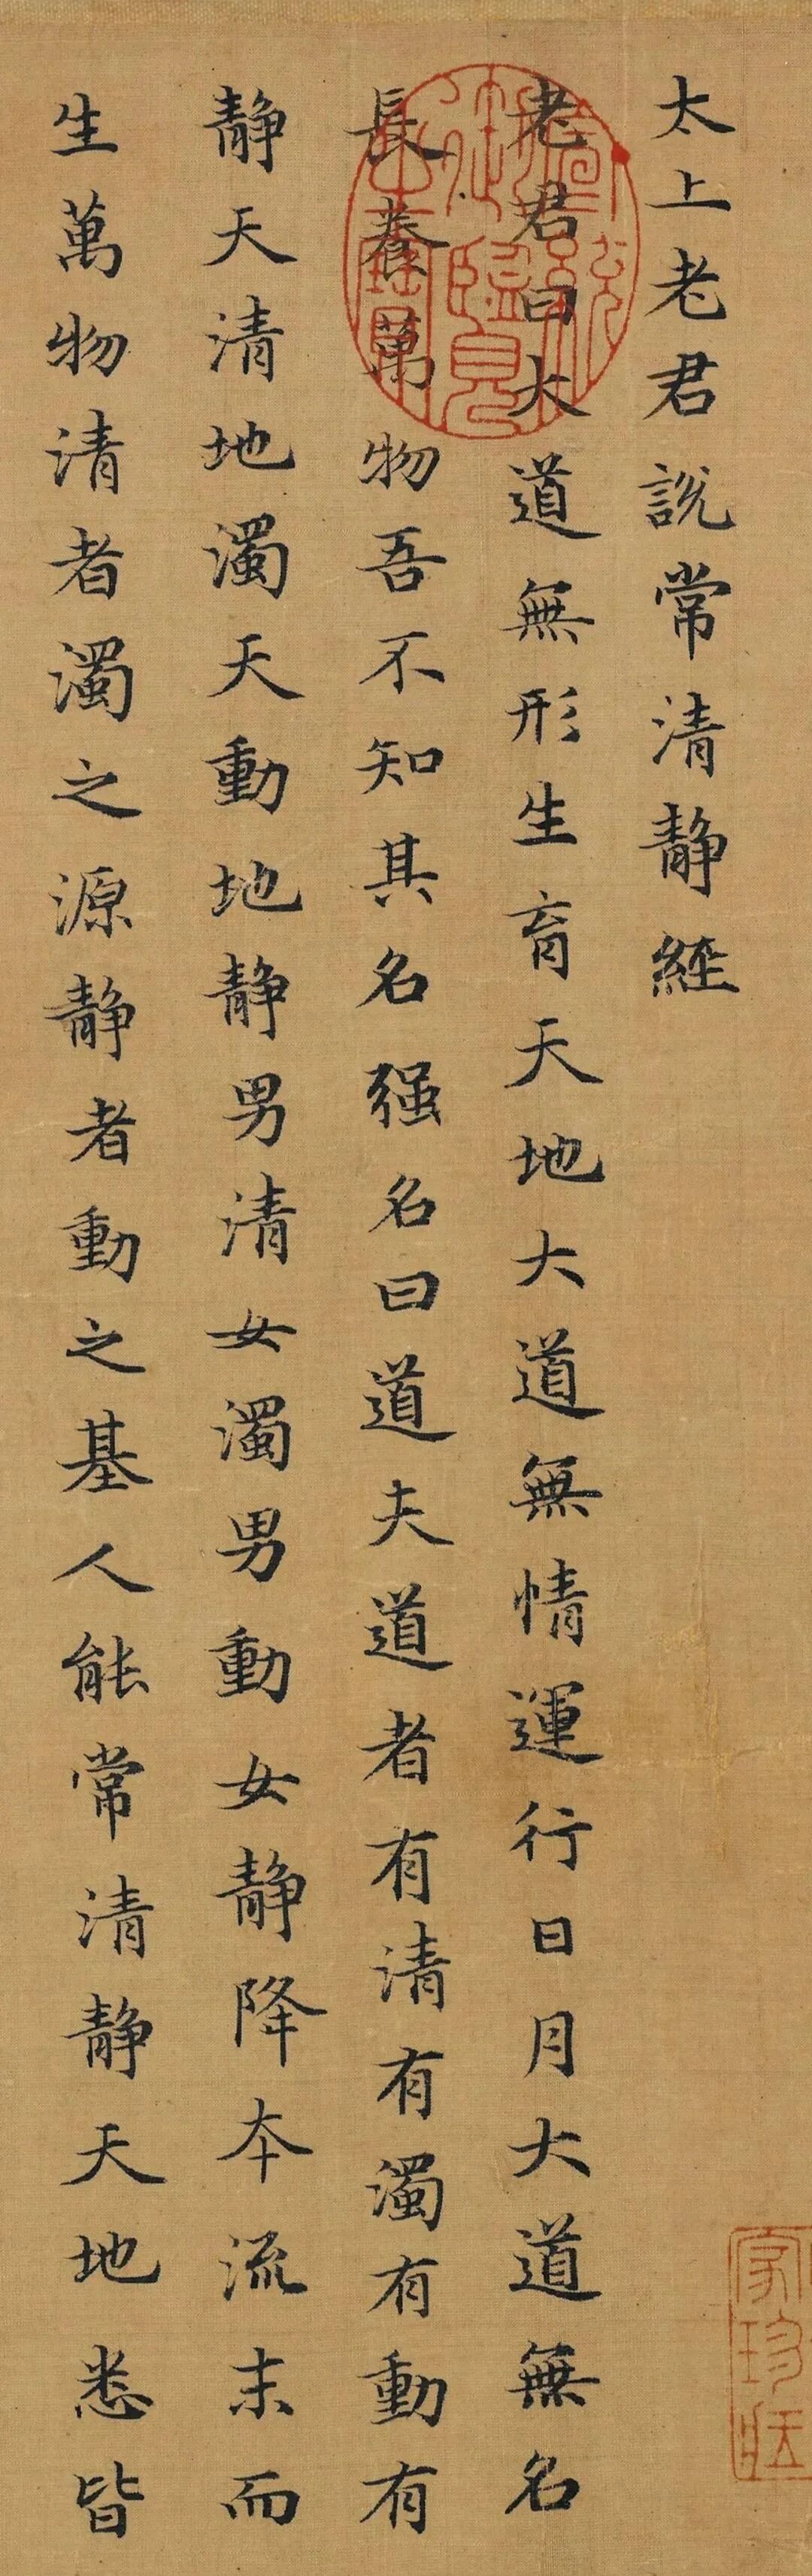 太上老君說常清靜經
老君曰大道無形生育天地大道無情運行日月大道無名
長養萬物吾不知其名强名曰道夫道者有清有濁有動有
靜天清地濁天動地靜男清女濁男動女靜降本流末而
生萬物清者濁之源靜者動之基人能常清靜天地悉皆
宣統御覽之寶